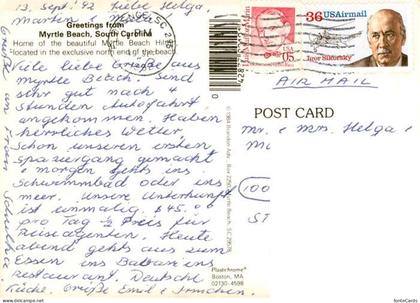 13. Sept. '92 Liebe Helga,
Martin
Greetings from
Myrtle Beach, South Carolina
Home of the beautiful Myrtle Beach
located in the exclusive north end of the beach
Viel liebe Grüße aus
Myrtle Beach. Sind
sehr gut nach 4
Stunden Autofahrt
angekommen. Haben
herrliches Wetter,
schon unseren ersten
spaziergang gemacht
& morgen gehts ins
Schwimmbad oder ins
meer. Unsere Unterkunft
ist einmalig. $45.00
pro Tag - ½ Preis für
Reiseagenten. Heute
abend gehts aus zum
Essen ins Bavarians
Restaurant. Deutsche
Küche. Grüße Emil & Irmchen.
Gruß an Frau
USA
05
36 USAirmail
Igor Sikorsky
AIR MAIL
POST CARD
Mr. & Mrs. Helga &
100
ST
Plastichrome®
Boston, MA
02130-4598
fonteCards